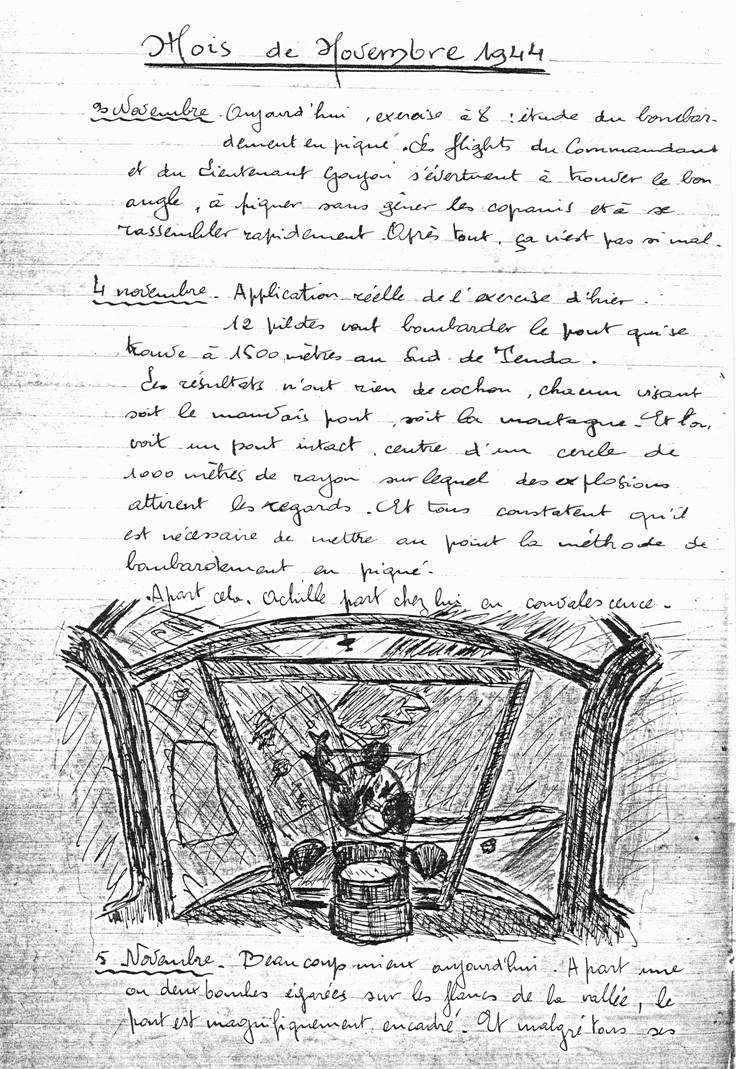 Mois de Novembre 1944
3 Novembre. Aujourd'hui, exercice à 8 : étude du bombar-
dement en piqué. Les flights du Commandant
et du Lieutenant Goyon s'évertuent à trouver le bon
angle, à piquer sans gêner les copains et à se
rassembler rapidement. Après tout, ça n'est pas si mal.
4 novembre. Application réelle de l'exercice d'hier.
12 pilotes vont bombarder le pont qui se
trouve à 1500 mètres au Sud de Tenda.
Les résultats n'ont rien de cochon, chacun visant
soit le mauvais pont, soit la montagne. Et l'on
voit un pont intact, centre d'un cercle de
1000 mètres de rayon sur lequel des explosions
attirent les regards. Et tous constatent qu'il
est nécessaire de mettre au point la méthode de
bombardement en piqué.
Apart cela, Achille part chez lui en convalescence.
5 Novembre. Beaucoup mieux aujourd'hui. Apart une
ou deux bombes égarées sur les flancs de la vallée, le
pont est magnifiquement encadré. Et malgré tous ses